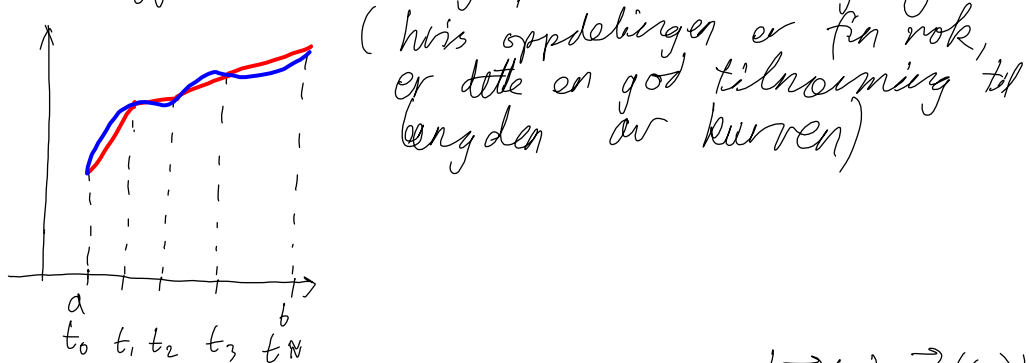 ( hvis oppdelingen er fin nok,
er dette en god tilnærming til
lengden av kurven)
a b
t₀ t₁ t₂ t₃ t_N